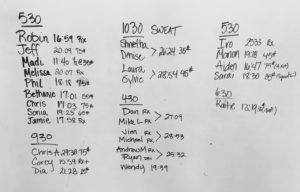 530
Robin 16:59 Rx
Jeff 20:09 75#
Madi 11:40
Melissa 20:07 Rx
Phil 18:18
Bethanie 17:01 55#
Chris 17:03 75#
Sonia 19:25 65#
Jamie 17:58 Rx
930
Chris A 29:38 75#
Corey 15:59 Rx+
Dia 21:28
1030 SWEAT
Shnetha
Denise > 26:24 35#
Laura
Sylvie > 28:54 45#
430
Dan Rx
Mike L Rx > 27:09
Jim Rx
Michael Rx > 28:53
Andrew M Rx
Ryan > 25:32
Wendy 19:39
530
Iro 25:33 Rx
Marion 19:18 45#
Aiden 16:47 75#
Sarai 18:30 35#
630
Katie 13:19